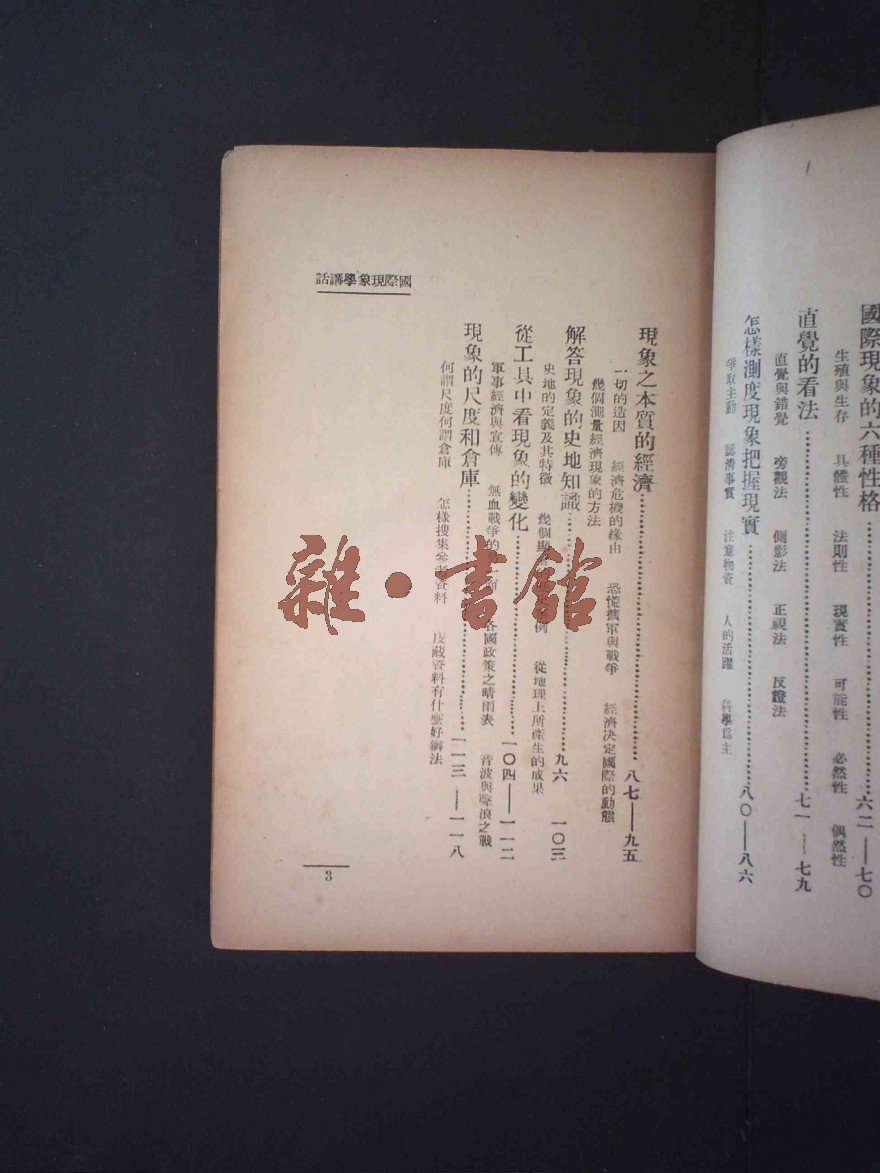 國際現象的六種性格……六二——七〇
生殖與生存 具體性 法則性 現實性 可能性 必然性 偶然性
直覺的看法……七一——七九
直覺與錯覺 旁觀法 側影法 正視法 反證法
怎樣測度現象把握現實……八〇——八六
爭取主動 認清事實 注意物資 人的活躍 科學爲主
國際現象學講話
現象之本質的經濟……八七——九五
一切的造因 經濟危機的緣由 恐慌擴軍與戰爭 經濟決定國際的動態
幾個測量經濟現象的方法
解答現象的史地知識……九六 一〇三
史地的定義及其特徵 幾個 例 從地理上所產生的成果
從工具中看現象的變化……一〇四——一一二
軍事經濟與宣傳 無血戰爭的 各國政策之晴雨表 音波與聲浪之戰
現象的尺度和倉庫……一一三——一一八
何謂尺度何謂倉庫 怎樣搜集參考資料 庋藏資料有什麼好辦法
3
雜·書館